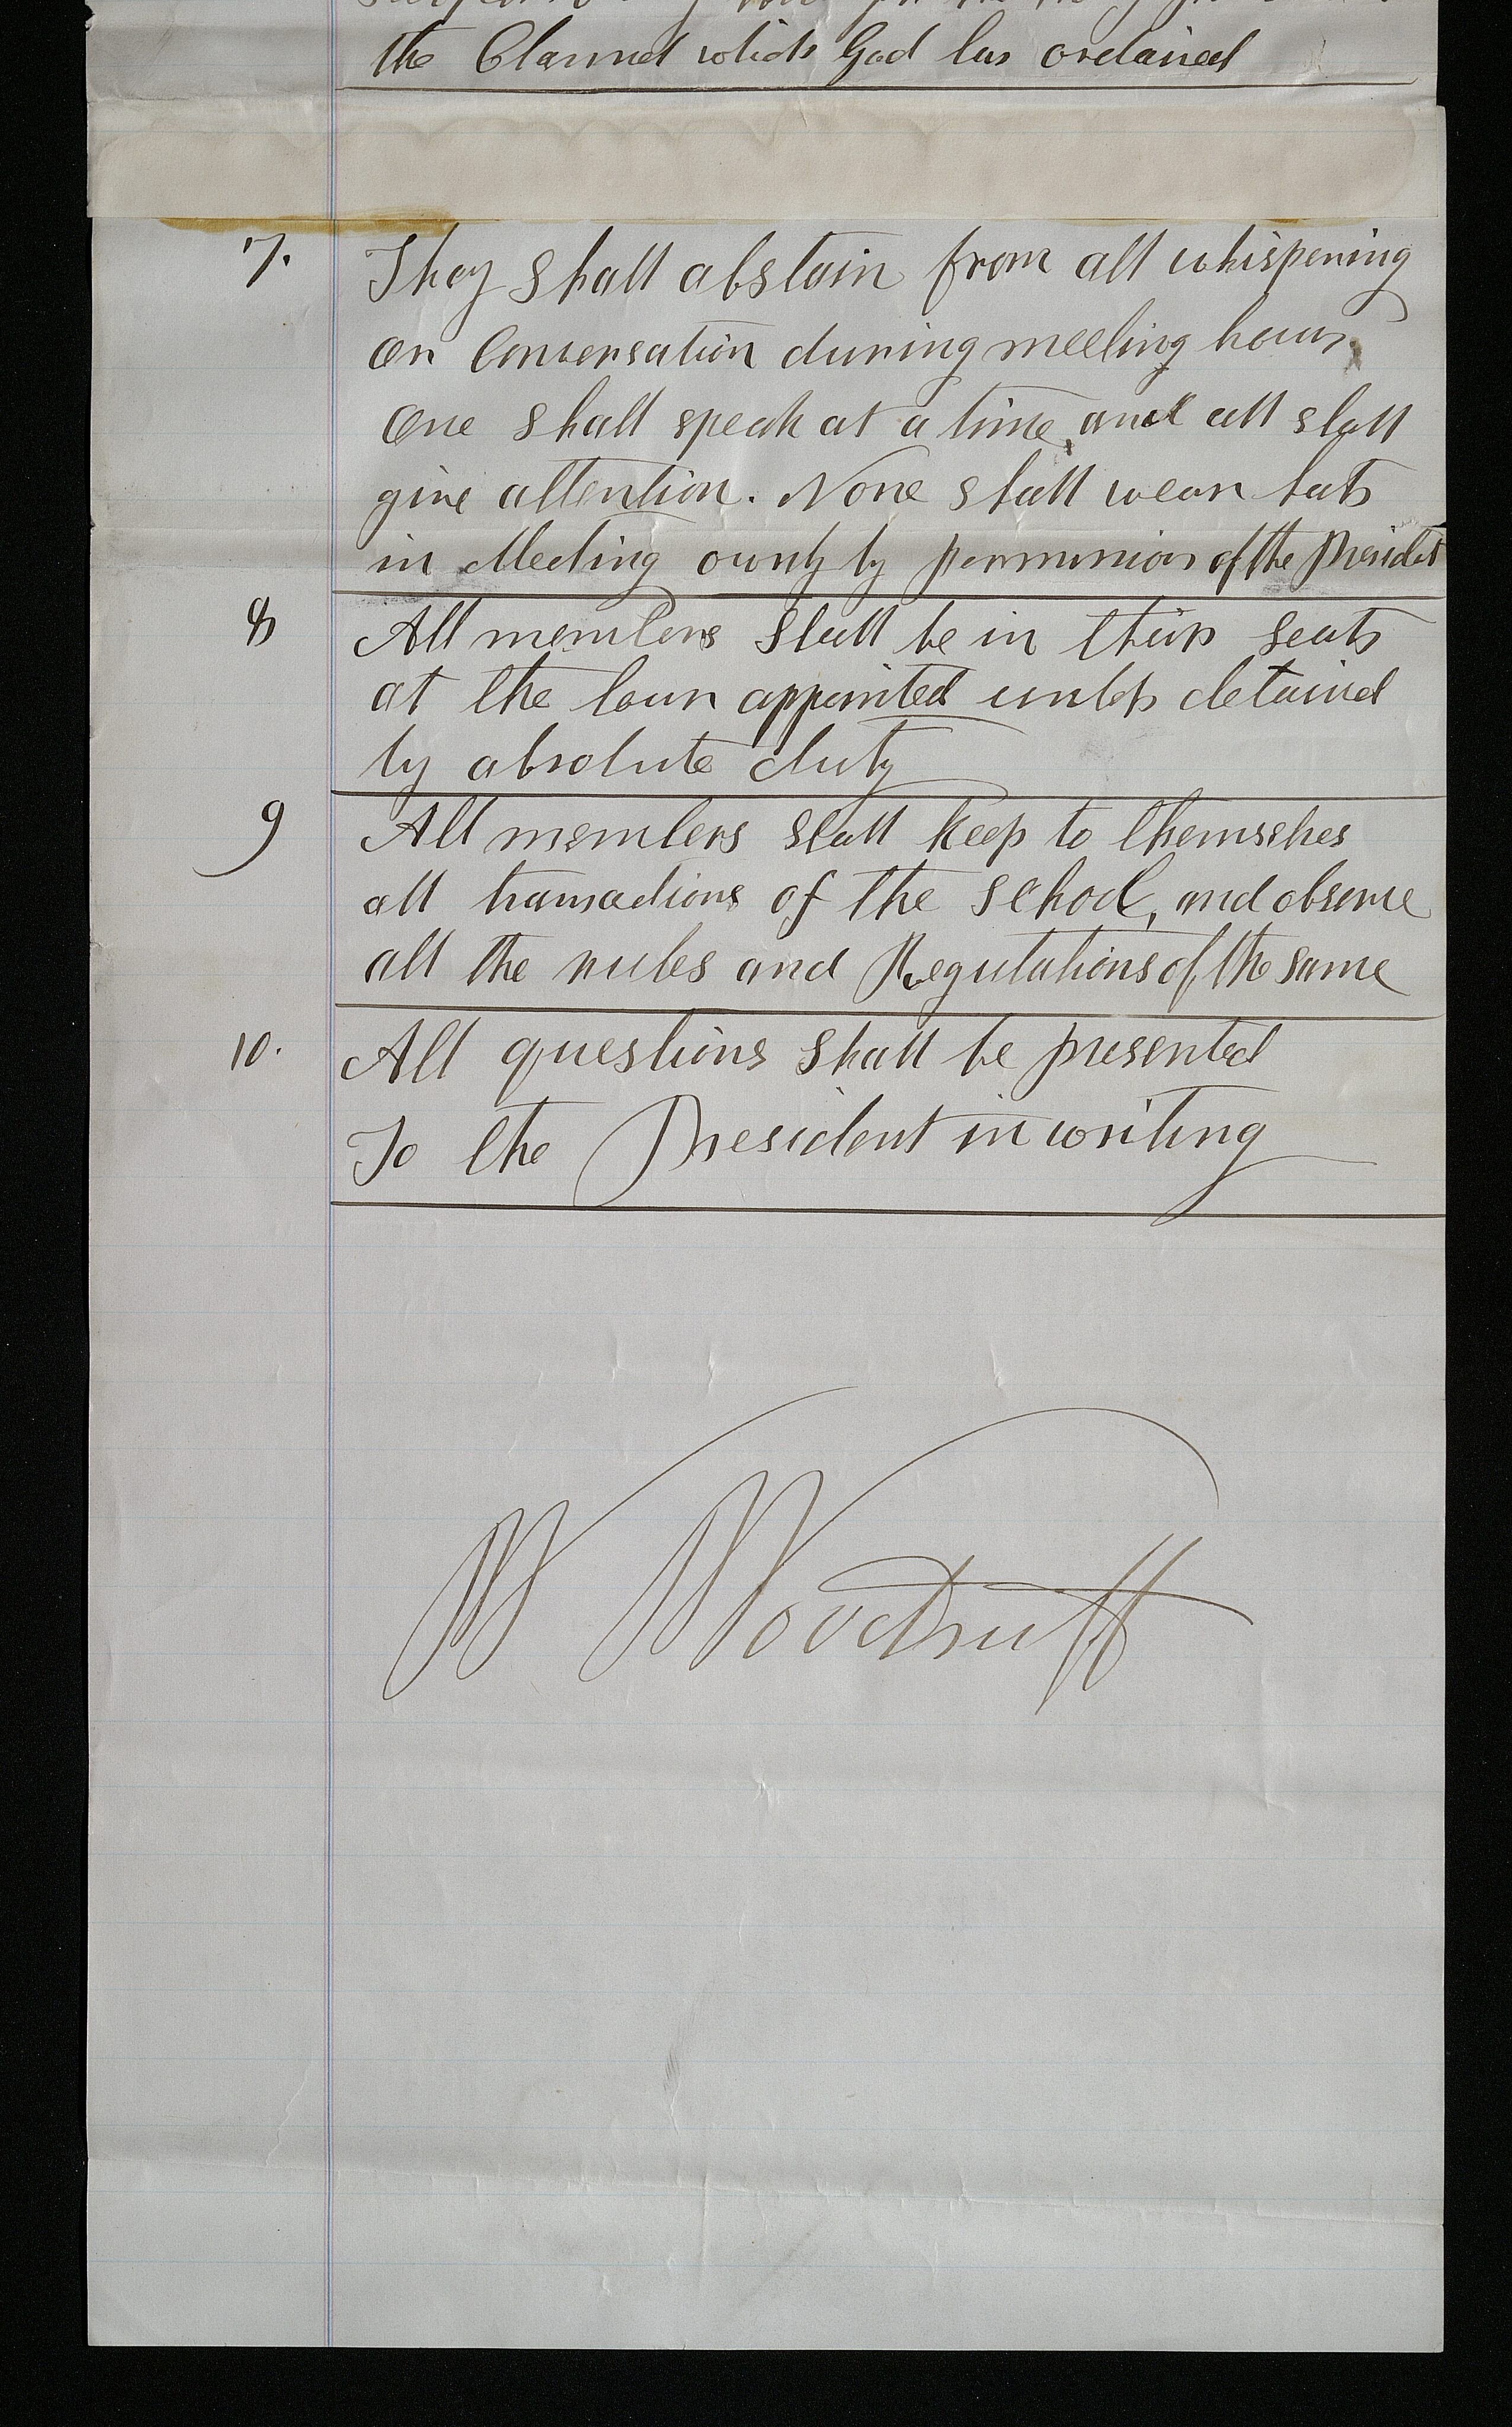 the Channel which God has ordained
7. They shall abstain from all whispering
or Conversation during meeting hours,
One shall speak at a time, and all shall
give attention. None shall wear hats
in Meeting ownly by permmision of the President
8 All members shall be in their seats
at the hour appointed unless detained
by absolute duty
9 All members shall keep to themselves
all transactions of the school, and observe
all the rules and Regulations of the same
10. All questions shall be presented
To the President in writing
W Woodruff